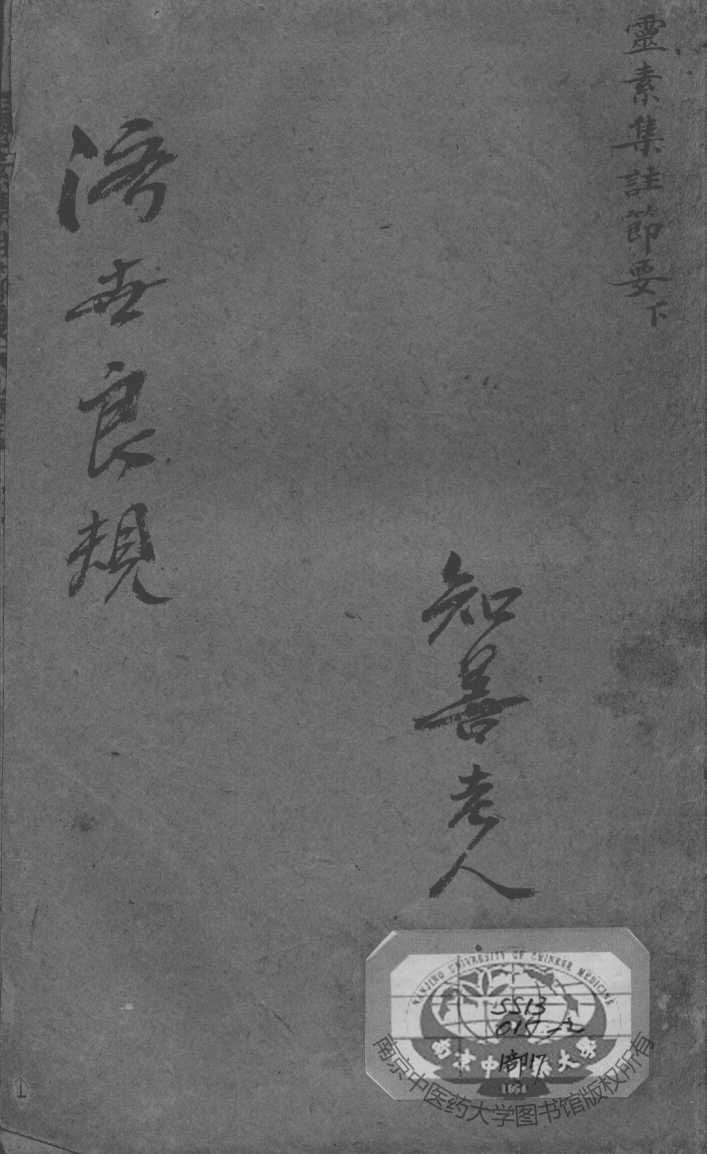 靈素集註節要下
知善老人
濟世良規
NANJING UNIVERSITY OF CHINESE MEDICINE
SS13
南京中医药大学
1954
南京中医药大学图书馆版权所有